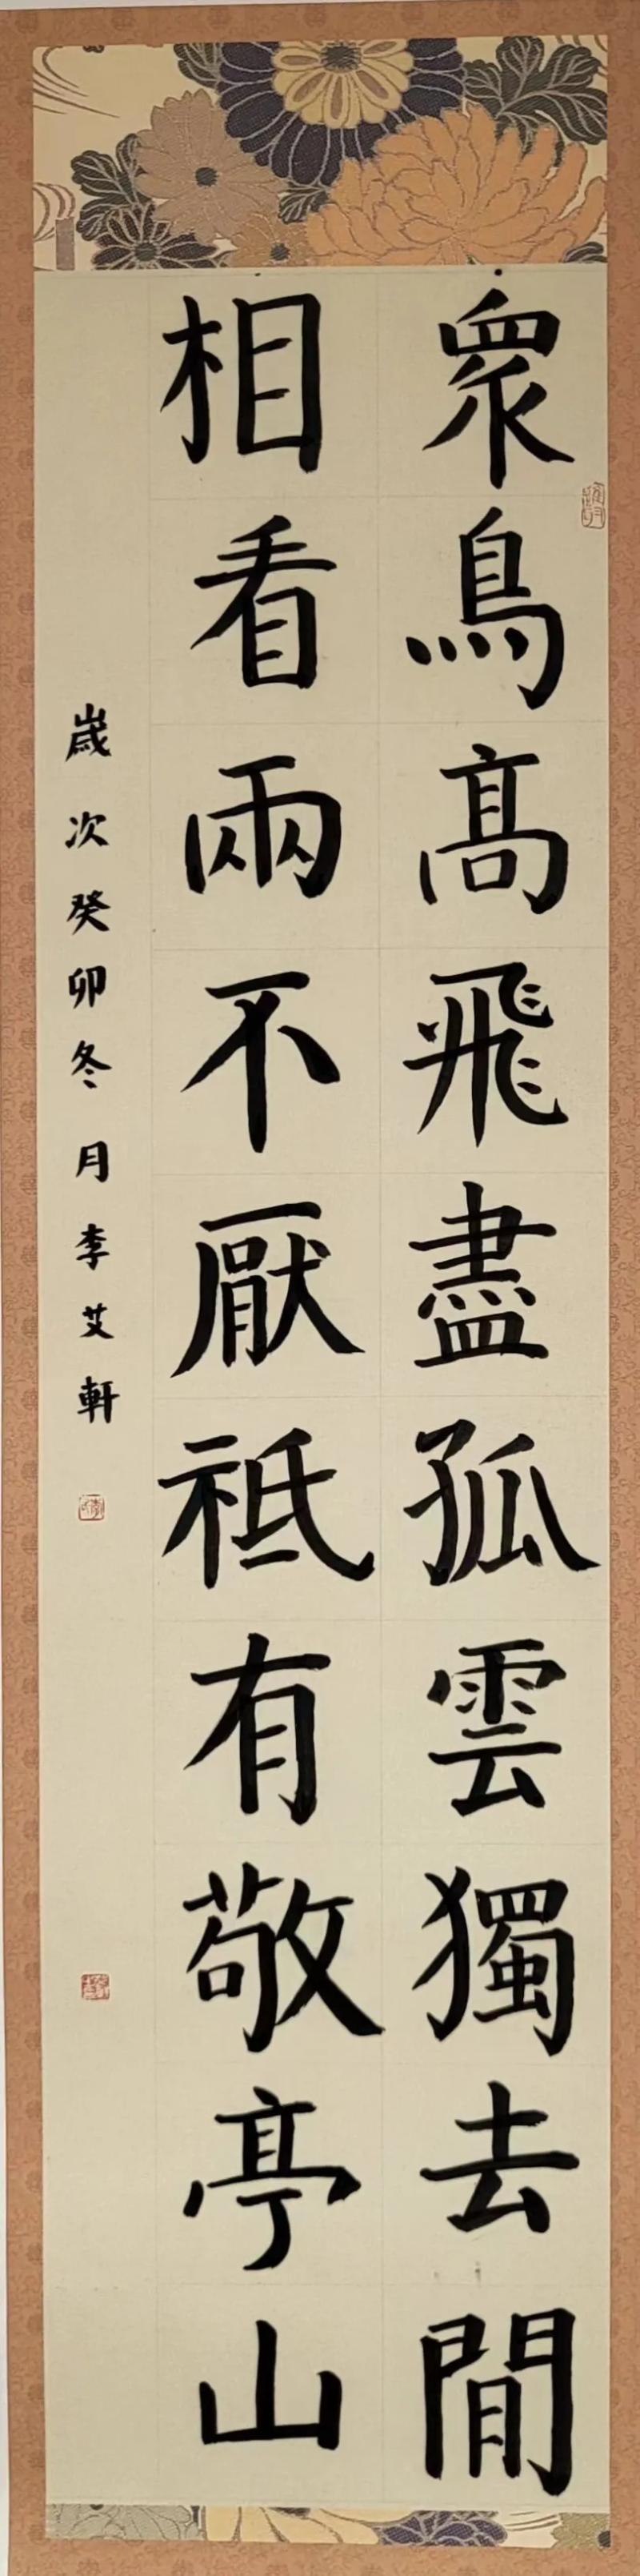 眾鳥高飛盡孤雲獨去閒
相看兩不厭祗有敬亭山
歲次癸卯冬月李艾軒